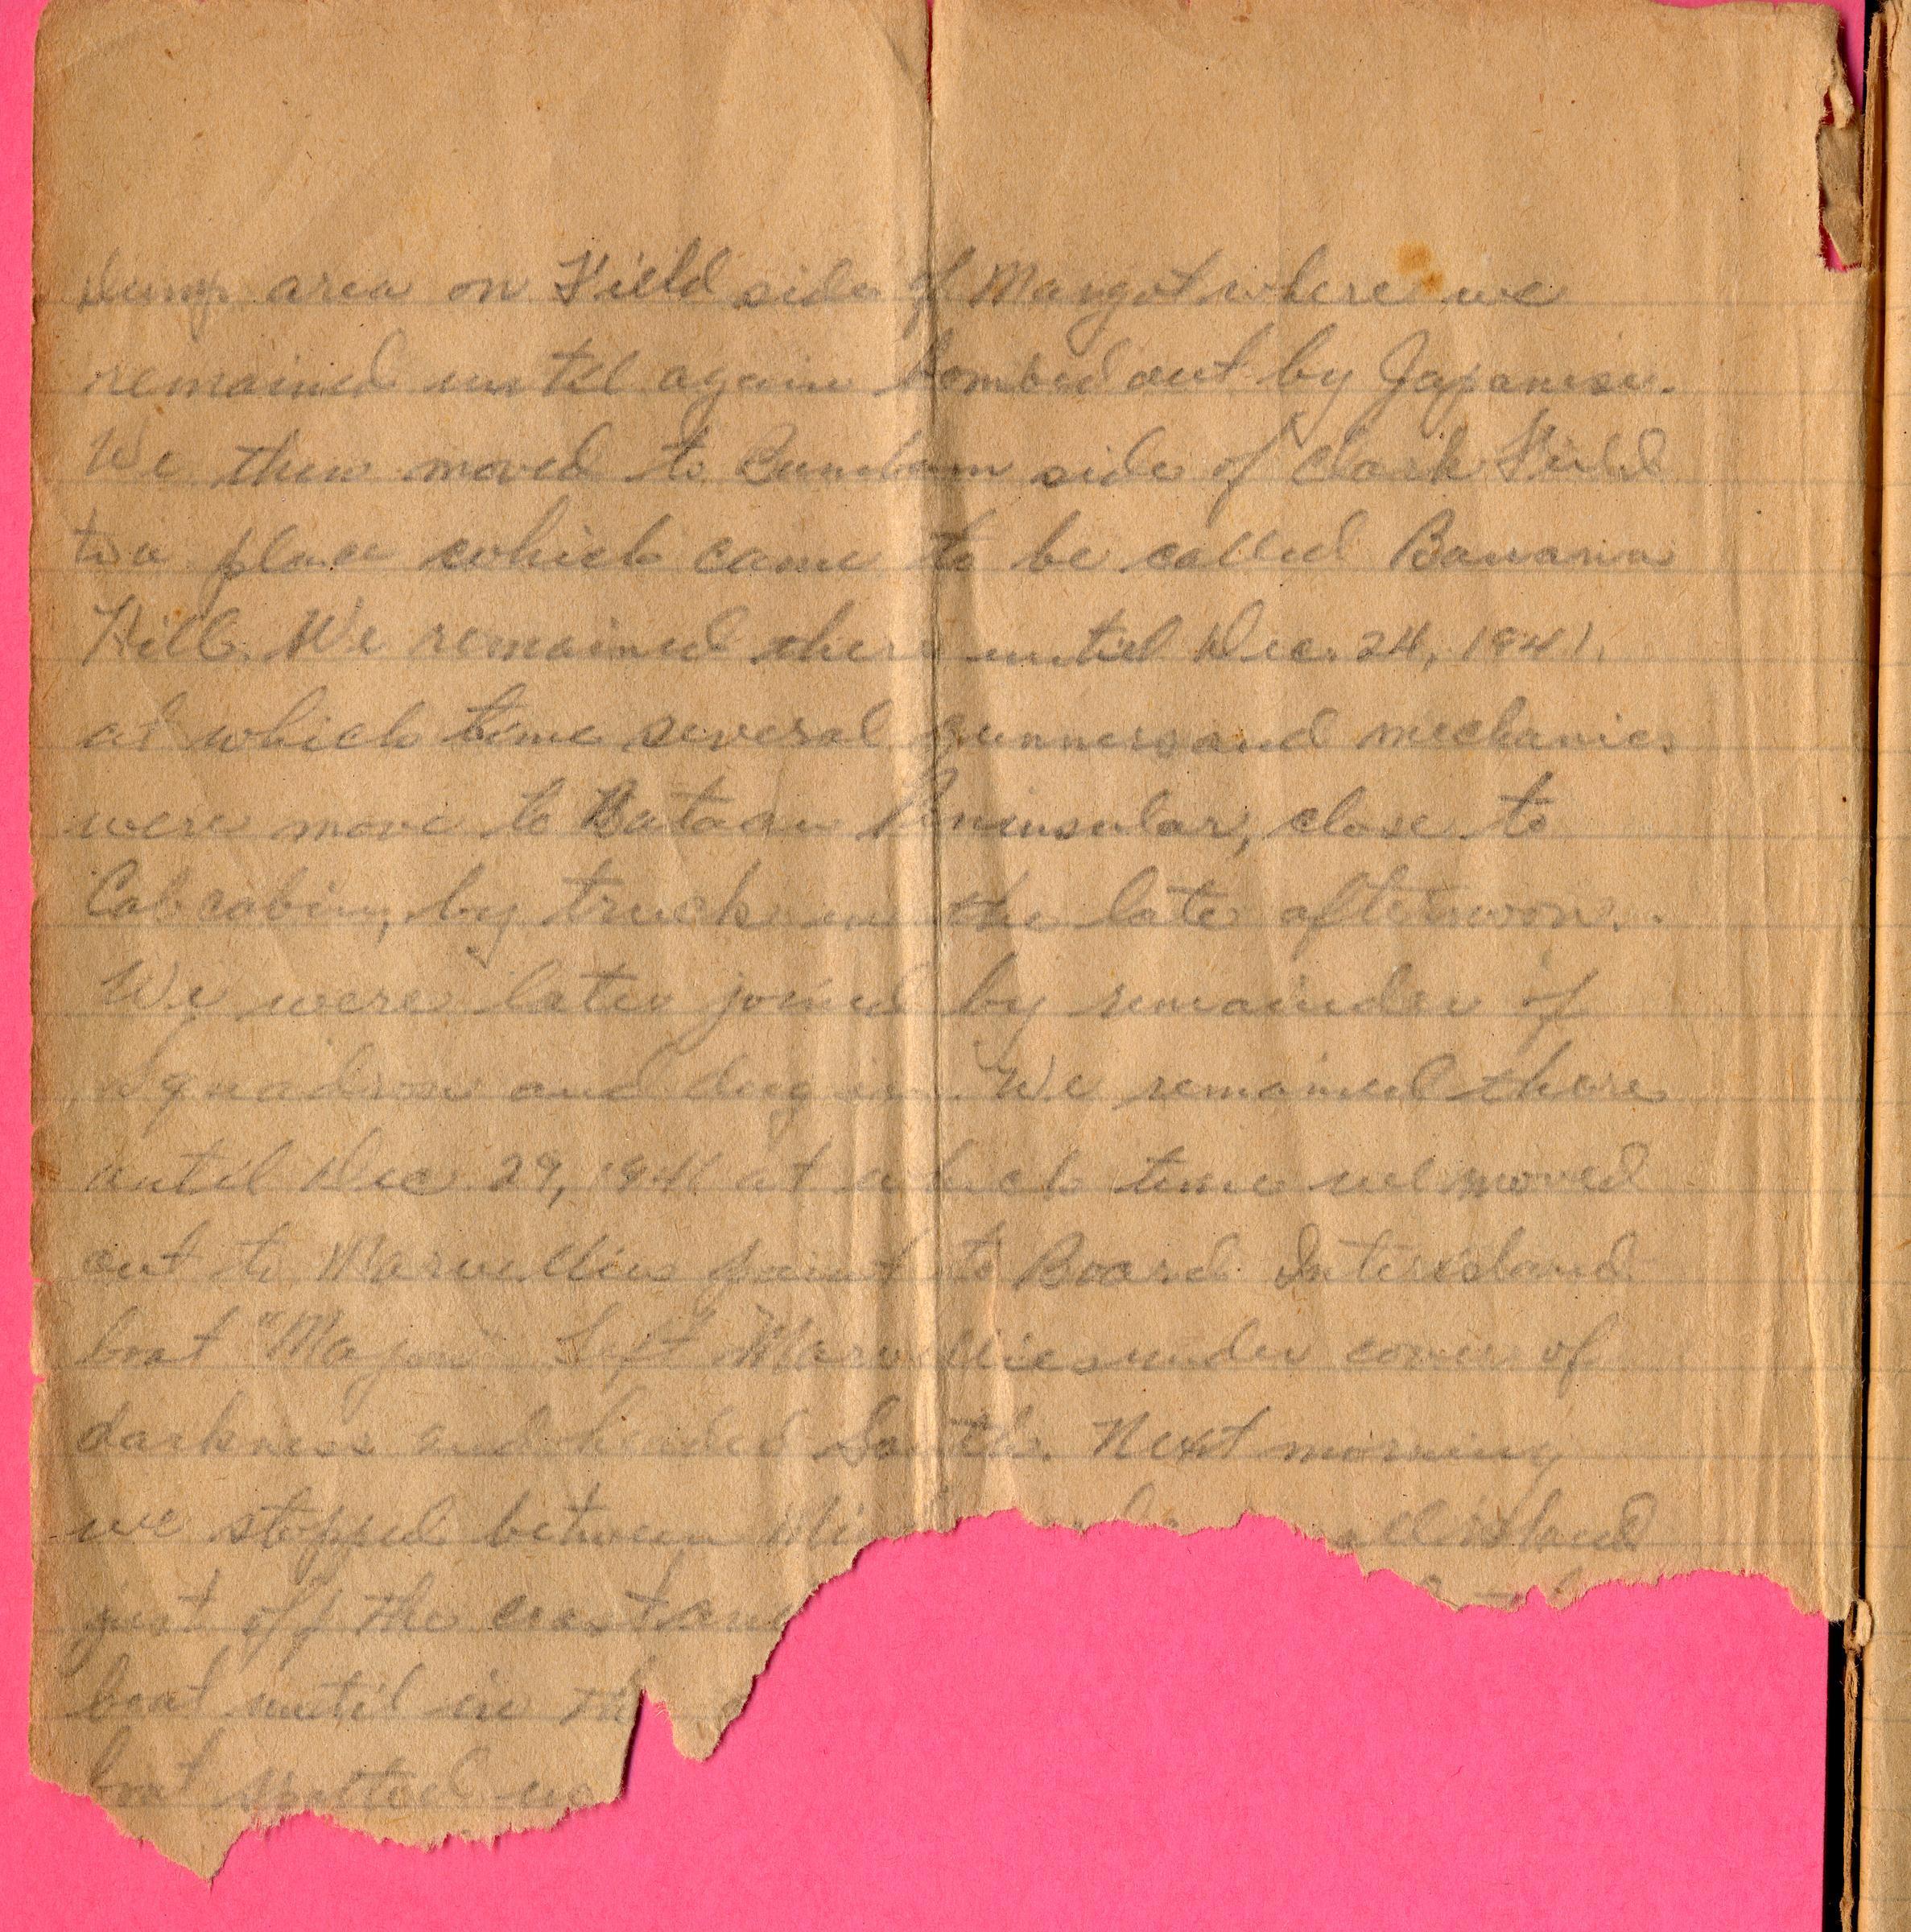 Dump area on Field side of Margot where we
remained until again bombed out by Japanese.
We then moved to side of Clark Field
to a place which came to be called Banana
Hill. We remained there until Dec. 24, 1941.
at which time several gunners and mechanics
were move to Bataan Peninsular, close to
Cabcabin, by truck in the late afternoon.
We were later joined by remainder of
Squadron and dug in. We remained there
until Dec 29, 1941 at which time we moved
out to Marvellies point to Board Interisland
boat "Mayon" Left Marvellies under cover of
darkness and headed South. Next morning
we stopped between island
just off the coast
boat until in
boat spotted us